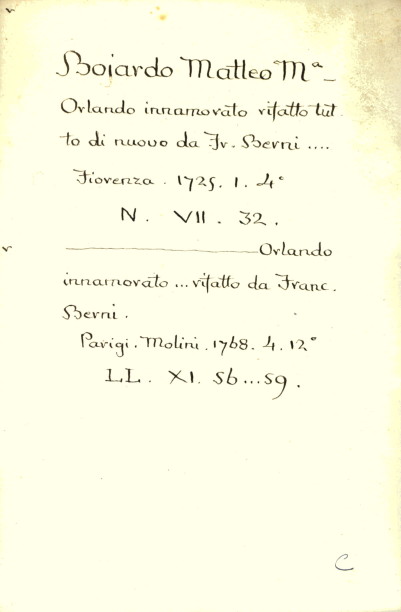 Boiardo Matteo Mª_
Orlando innamorato rifatto tut
to di nuovo da Fr. Berni ....
Fiorenza . 1725 . 1 . 4°
N . VII . 32 .
—————Orlando
innamorato ... rifatto da Franc.
Berni .
Parigi . Molini . 1768 . 4 . 12°
LL . XI . 56 ... 59 .
C